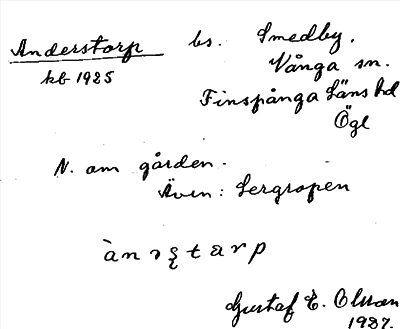 Anderstorp bs. Smedby.
kb 1925 Vånga sn.
Finspånga Läns hd
Ögl
N. om gården.
Även: Lergropen
Gustaf E. Olsson
1927.